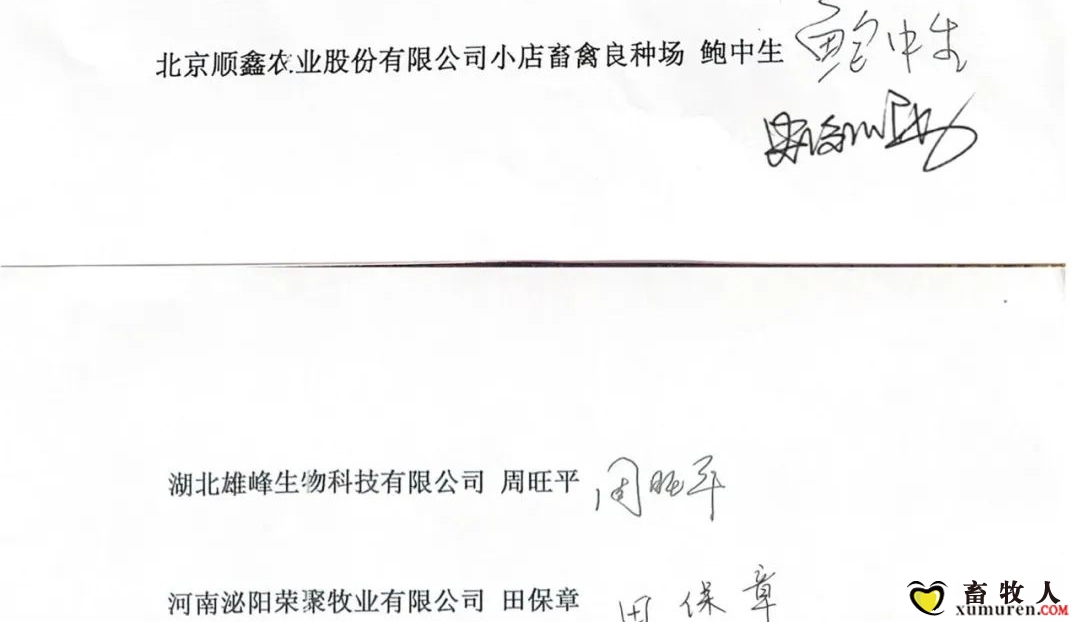 北京顺鑫农业股份有限公司小店畜禽良种场 鲍中生 鲍中生
湖北雄峰生物科技有限公司 周旺平 周旺平
河南泌阳荣聚牧业有限公司 田保章 田保章
畜牧人
xumuren.com